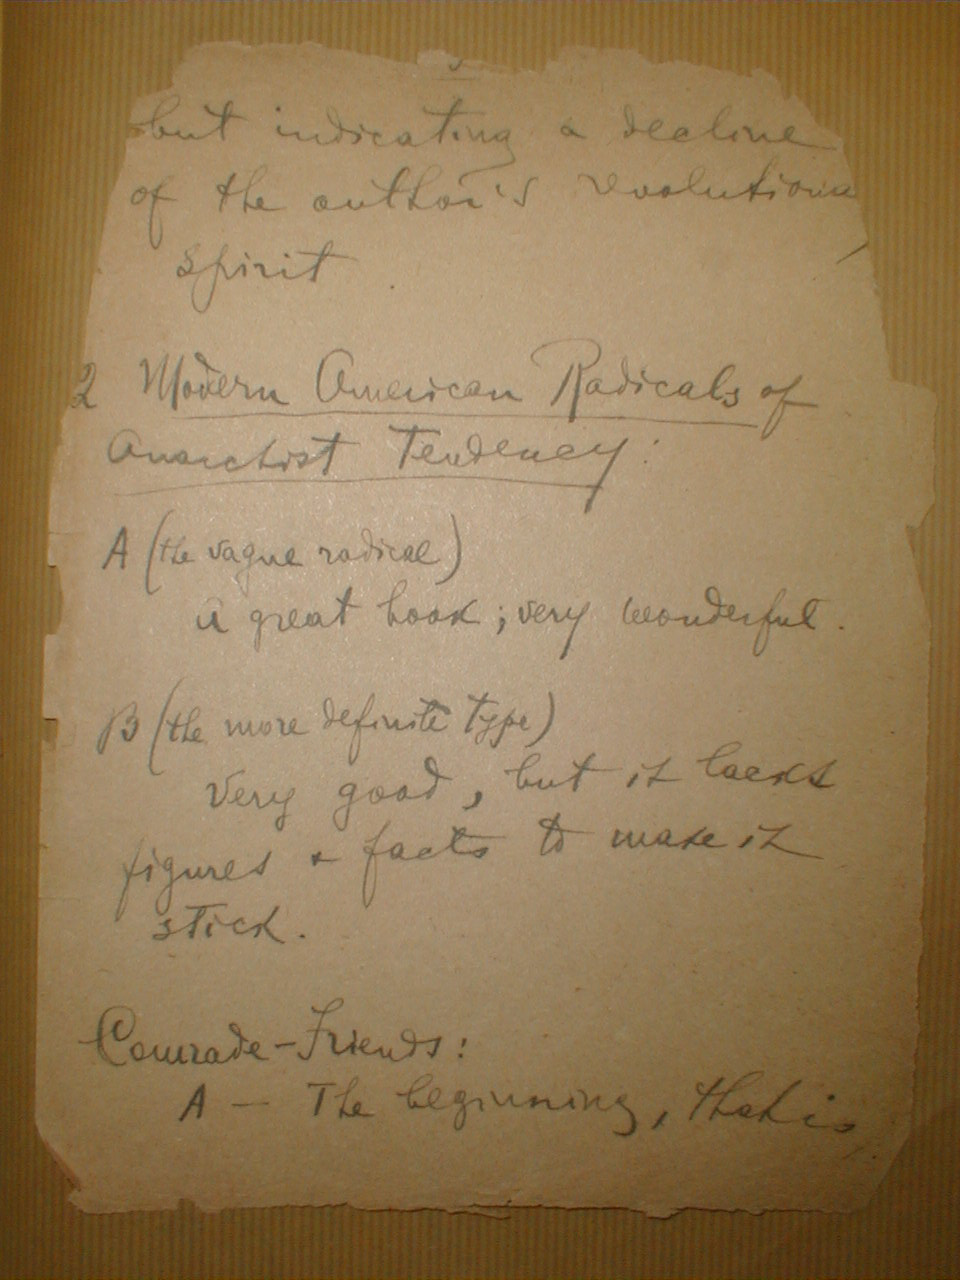 but indicating a decline
of the author's revolution
spirit
2 Modern American Radicals of
Anarchist Tendency:
A (the vague radical)
a great book; very wonderful.
B (the more definite type)
Very good, but it lacks
figures & facts to make it
stick.
Comrade-Friends:
A — The beginning, that is,